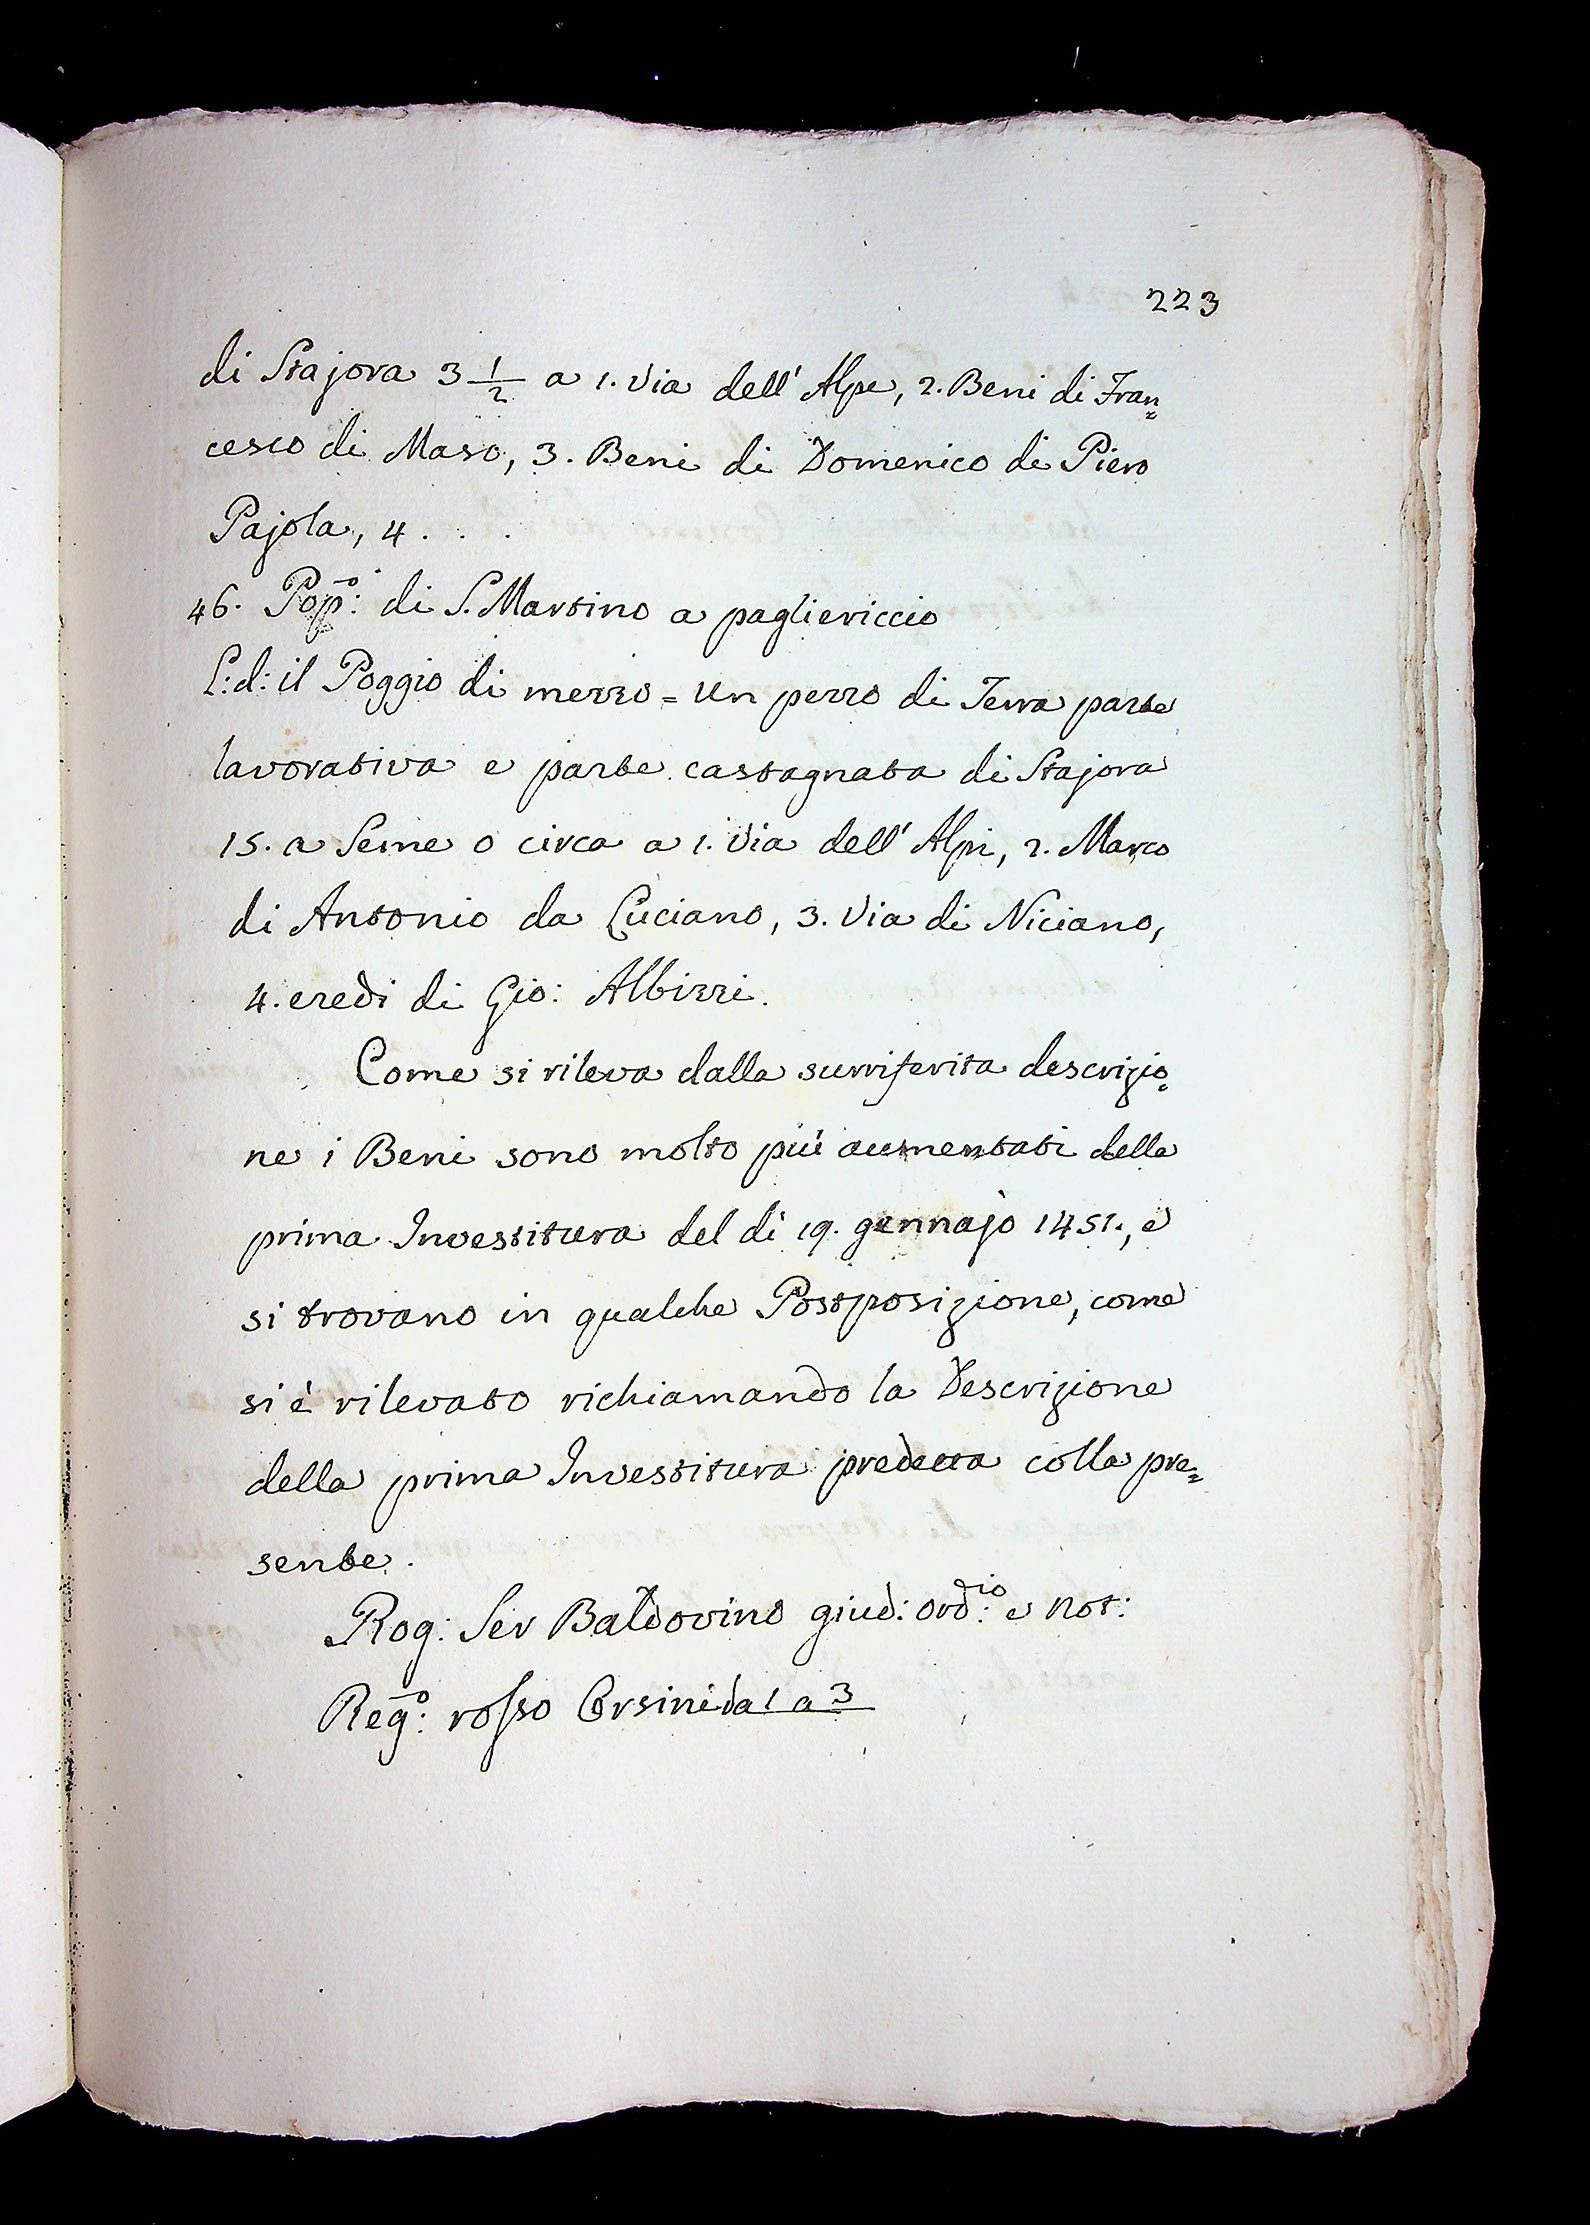 223
di Stajora 3 1/2 a 1. Via dell' Alpe, 2. Beni di Fran=
cesco di Maso, 3. Beni di Domenico di Piero
Pajola, 4 . . .
46. Pop:º di S. Martino a pagliericcio
L: d: il Poggio di mezzo = Un pezzo di Terra parte
lavorativa e parte castagnata di Stajora
15. a Seme o circa a 1. Via dell' Alpi, 2. Marco
di Antonio da Luciano, 3. Via di Niciano,
4. eredi di Gio: Albizzi.
Come si rileva dalla surriferita descrizio=
ne i Beni sono molto più aumentati della
prima Investitura del dì 19. gennajo 1451., e
si trovano in qualche Postposizione, come
si è rilevato richiamando la Descrizione
della prima Investitura predetta colla pre=
sente.
Rog: Ser Baldovino giud: ord:rio e not:
Reg:º rosso Orsini da 1 a 3